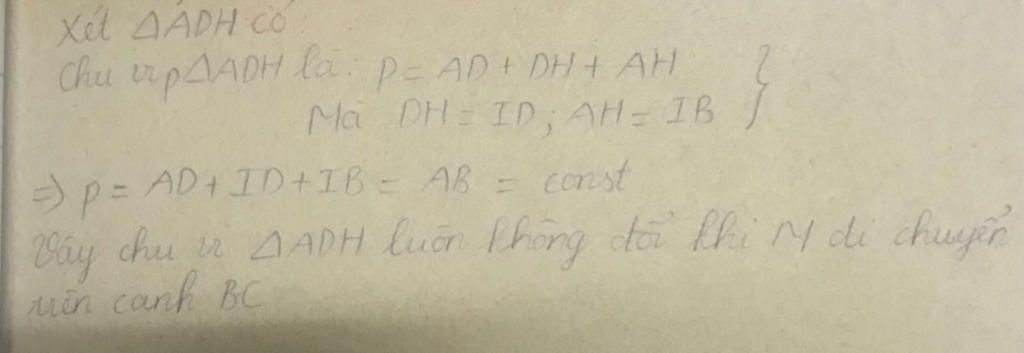 Xét △ADH có
Chu vi p△ADH là: p = AD + DH + AH
Mà DH = ID; AH = IB }
⇒ p = AD + ID + IB = AB = const
Vậy chu vi △ADH luôn không đổi khi M di chuyển
trên cạnh BC